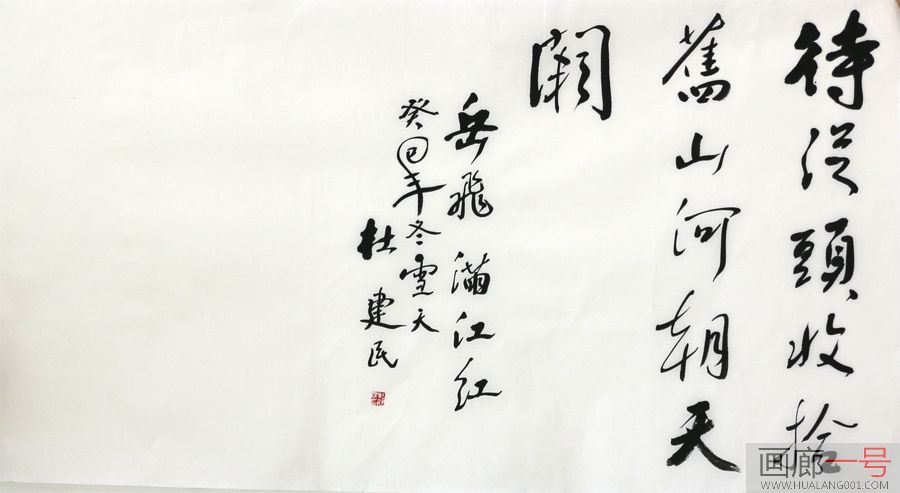 待從頭收拾
舊山河朝天
闕
岳飛滿江红
癸巳年冬雪天
杜建民
画廊一号
WWW.HUALANG001.COM